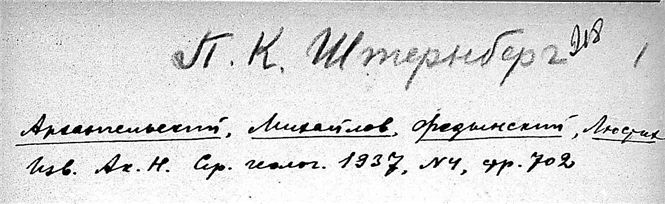 П. К. Штернберг 218 1
Архангельский, Михайлов, Федынский, Люстих
Изв. Ак. Н. Сер. геолог. 1937, N4, стр. 702